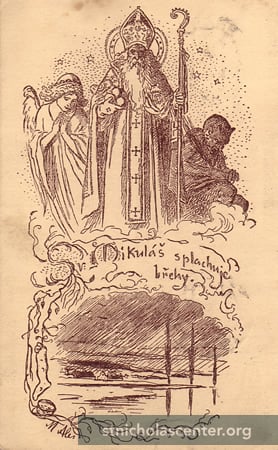 Mikuláš splachuje
břehy.
M. Aleš
stnicholascenter.org